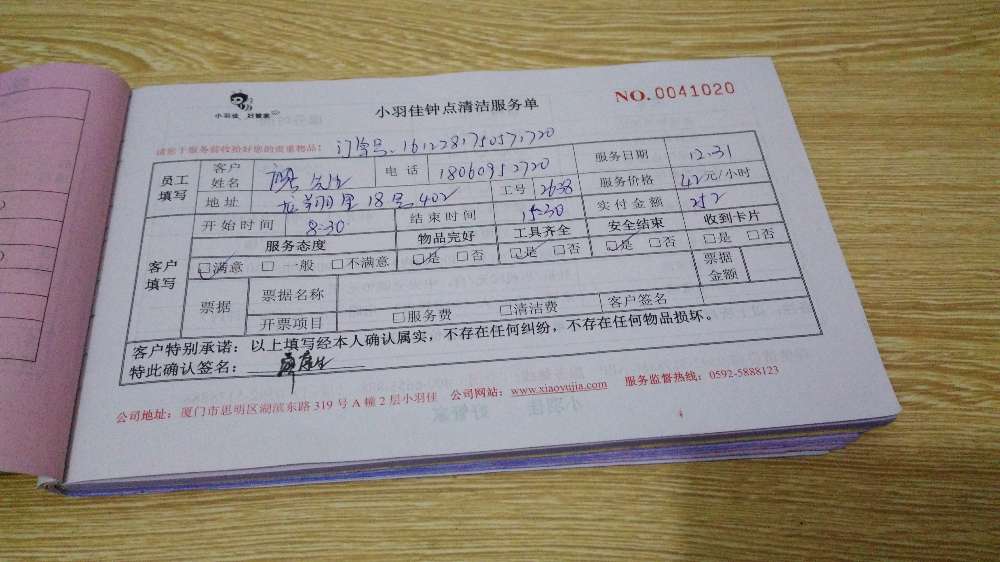 小羽佳 好管家
小羽佳钟点清洁服务单
NO.0041020
请您于服务前收拾好您的贵重物品！
订单号: 161228175057,720
员工填写 客户姓名 先生 电话 18060952720 服务日期 12.31
地址 18号402 工号 2638 服务价格 42元/小时
客户填写 开始时间 8-30 结束时间 15-30 实付金额 252
服务态度 物品完好 工具齐全 安全结束 收到卡片
□满意 □一般 □不满意 □是 □否 □是 □否 □是 □否 □是 □否
票据 票据名称 票据金额
开票项目 □服务费 □清洁费 客户签名
客户特别承诺：以上填写经本人确认属实，不存在任何纠纷，不存在任何物品损坏。
特此确认签名：
公司地址：厦门市思明区湖滨东路319号A幢2层小羽佳 公司网站：www.xiaoyujia.com 服务监督热线：0592-5888123